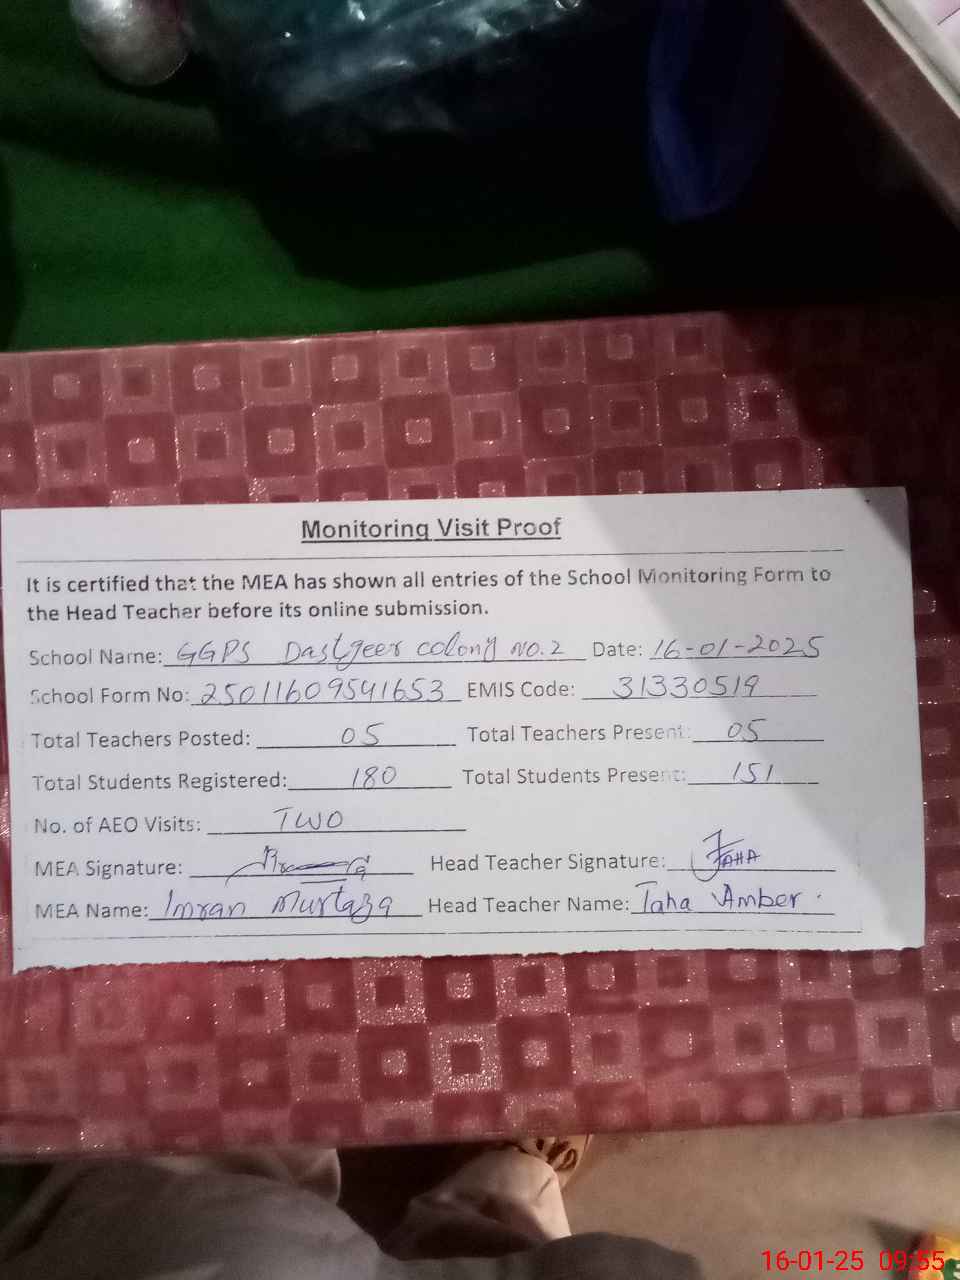 Monitoring Visit Proof
It is certified that the MEA has shown all entries of the School Monitoring Form to
the Head Teacher before its online submission.
School Name: GGPS Dastgeer colony NO.2 Date: 16-01-2025
School Form No: 25011609541653 EMIS Code: 31330519
Total Teachers Posted: 05 Total Teachers Present: 05
Total Students Registered: 180 Total Students Present: 151
No. of AEO Visits: TWO
MEA Signature: Head Teacher Signature: TAHA
MEA Name: Imran Murtaza Head Teacher Name: Taha Amber.
16-01-25 09:55